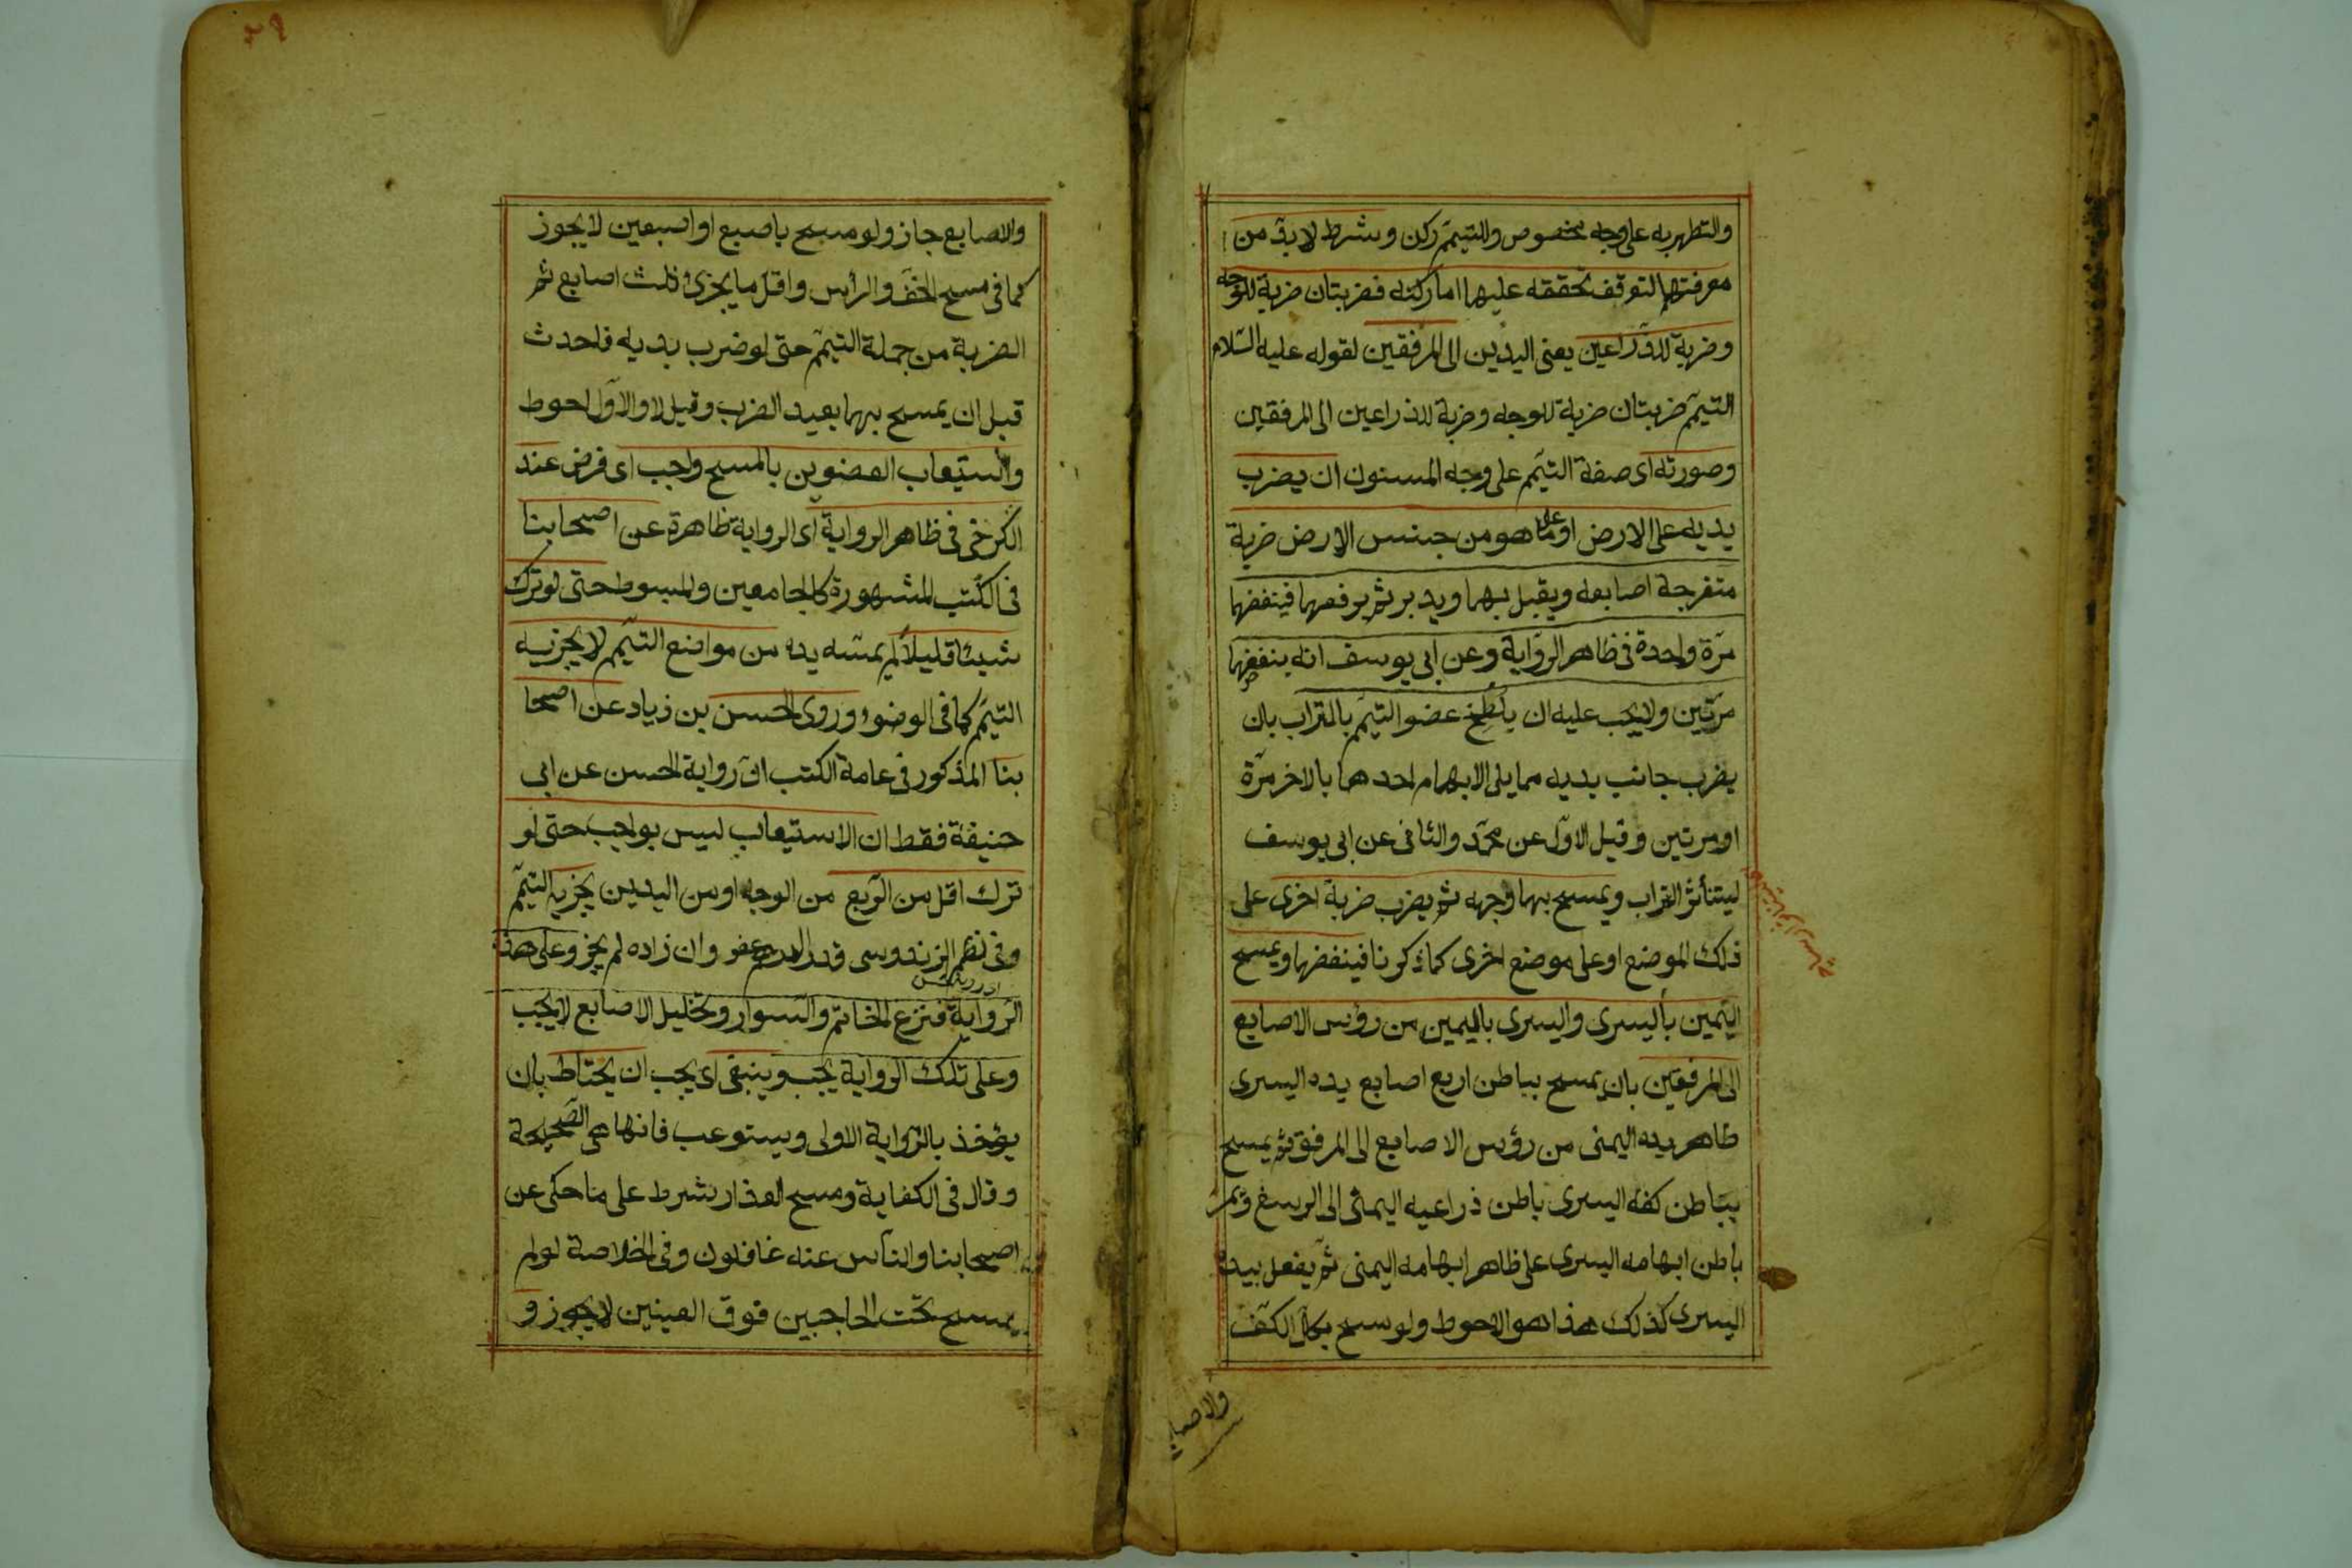 والتطهر به على وجه مخصوص وللتيمّم ركن وشرط لا بدّ من
معرفتهما لتوقف تحققه عليهما اما ركنه فضربتان ضربة للوجه
وضربة للذّراعين يعنى اليدين الى المرفقين لقوله عليه السّلام
التيمّم ضربتان ضربة للوجه وضربة للذراعين الى المرفقين
وصورته اى صفة التيمّم على وجه المسنون ان يضرب
يديه على الارض او على ما هو من جنس الارض ضربة
متفرجة اصابعه ويقبل بهما ويدبر ثم يرفعهما فينفضهما
مرّة واحدة فى ظاهر الرّواية وعن ابى يوسف انه ينفضهما
مرّتين ولا يجب عليه ان يلطخ عضو التيمّم بالتراب بان
يضرب جانب يديه مما يلى الابهام احدهما بالاخر مرّة
او مرتين وقيل الاوّل عن محمّد والثانى عن ابى يوسف
ليتناثر التراب ويمسح بهما وجهه ثم يضرب ضربة اخرى على
ذلك الموضع او على موضع اخرى كما ذكرنا فينفضهما ويمسح
اليمين باليسرى واليسرى باليمين من رؤس الاصابع
الى المرفقين بان يمسح بباطن اربع اصابع يده اليسرى
ظاهر يده اليمنى من رؤس الاصابع الى المرفق ثم يمسح
بباطن كفه اليسرى باطن ذراعيه اليمنى الى الرسغ ويمر
باطن ابهامه اليسرى على ظاهر ابهامه اليمنى ثم يفعل بيده
اليسرى كذلك هذا هو الاحوط ولو مسح بكل الكفّ
والاصابع
والاصابع جاز ولو مسح باصبع او اصبعين لا يجوز
كما فى مسح الخفّ والرأس واقل ما يجزئ ثلث اصابع ثم
الضربة من جملة التيمّم حتى لو ضرب يديه فاحدث
قبل ان يمسح بهما يعيد الضرب وقيل لا والاوّل احوط
واستيعاب العضوين بالمسح واجب اى فرض عند
الكرخى فى ظاهر الرواية اى الرواية ظاهرة عن اصحابنا
فى الكتب المشهورة كالجامعين والمبسوط حتى لو ترك
شيئا قليلا لم يمسّه يده من مواضع التيمّم لا يجزيه
التيمّم كما فى الوضوء وروى الحسن بن زياد عن اصحا
بنا المذكور فى عامة الكتب انّ رواية الحسن عن ابى
حنيفة فقط ان الاستيعاب ليس بواجب حتى لو
ترك اقل من الرّبع من الوجه او من اليدين يجزيه التيمّم
وفى نظم الزندوسى قدر الدرهم عفو وان زاد لم يجز وعلى هذه
الرّواية فنزع الخاتم والسّوار وتخليل الاصابع لا يجب
وعلى تلك الرواية يجب وينبغى اى يجب ان يحتاط بان
يؤخذ بالرّواية الاولى ويستوعب فانها هى الصّحيحة
وقال فى الكفاية ومسح العذار شرط على ما حكى عن
اصحابنا والناس عنه غافلون وفى الخلاصة لو لم
يمسح تحت الحاجبين فوق العينين لا يجوز و